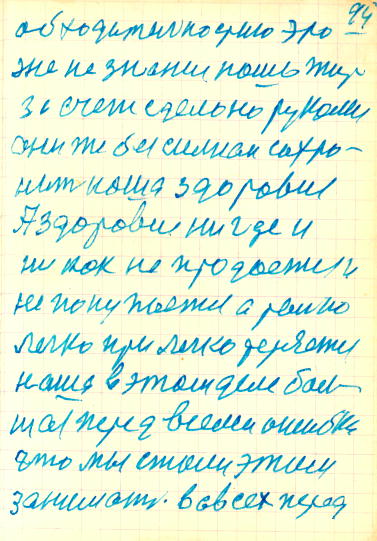 94
обходительностью это
же не знаем наша жиз
за счет сделано руками
они же бессильнаи сохро-
нит наша здоровия
А здоровия нигде и
ни как не продается и
не покупается а
легко при легко теряется
наша в этом деле боль-
шая перед всеми ошибка
что мы стали этим
заниматс. во всех перед